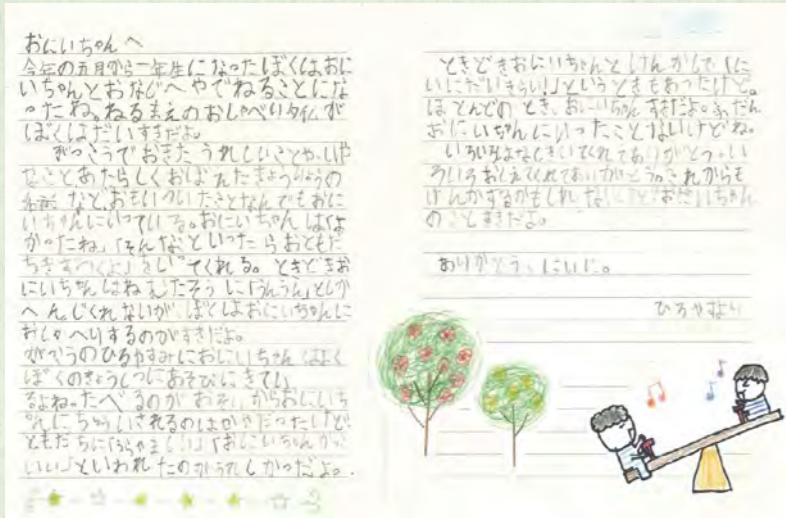 おにいちゃんへ
今年の五月から一年生になったぼくはおに
いちゃんとおなじへやでねることにな
ったね。ねるまえのおしゃべりタイムが
ぼくはだいすきだよ。
がっこうでおきたうれしいことや、いや
なことあたらしくおぼえたきょうりゅうの
名前など、おもいついたことなんでもおに
いちゃんにいっている。おにいちゃんは「よ
かったね」「そんなこといったらおともだ
ちきずつくよ」といってくれる。ときどきお
にいちゃんはねむたそうに「うんうん」としか
へんじくれないが、ぼくはおにいちゃんに
おしゃべりするのがすきだよ。
がっこうのひるやすみにおにいちゃんはよく
ぼくのきょうしつにあそびにきてい
るよね。たべるのがおそいからおにいち
ゃんにちゅういされるのは
ともだちに「うらやましい」「おにいちゃんかっこ
いい」といわれたのがうれしかっだよ。
ときどきおにいちゃんとけんかして「に
いにだいきらい!」というときもあったけど。
ほとんどのとき、おにいちゃんすきだよ。ふだん
おにいちゃんにいったことないけどね。
いろいろはなしきいてくれてありがとう。い
ろいろおしえてくれてありがとう。これからも
けんかするかもしれないけどおにいちゃん
のことすきだよ。
ありがとう、にいに。
ひろやすより